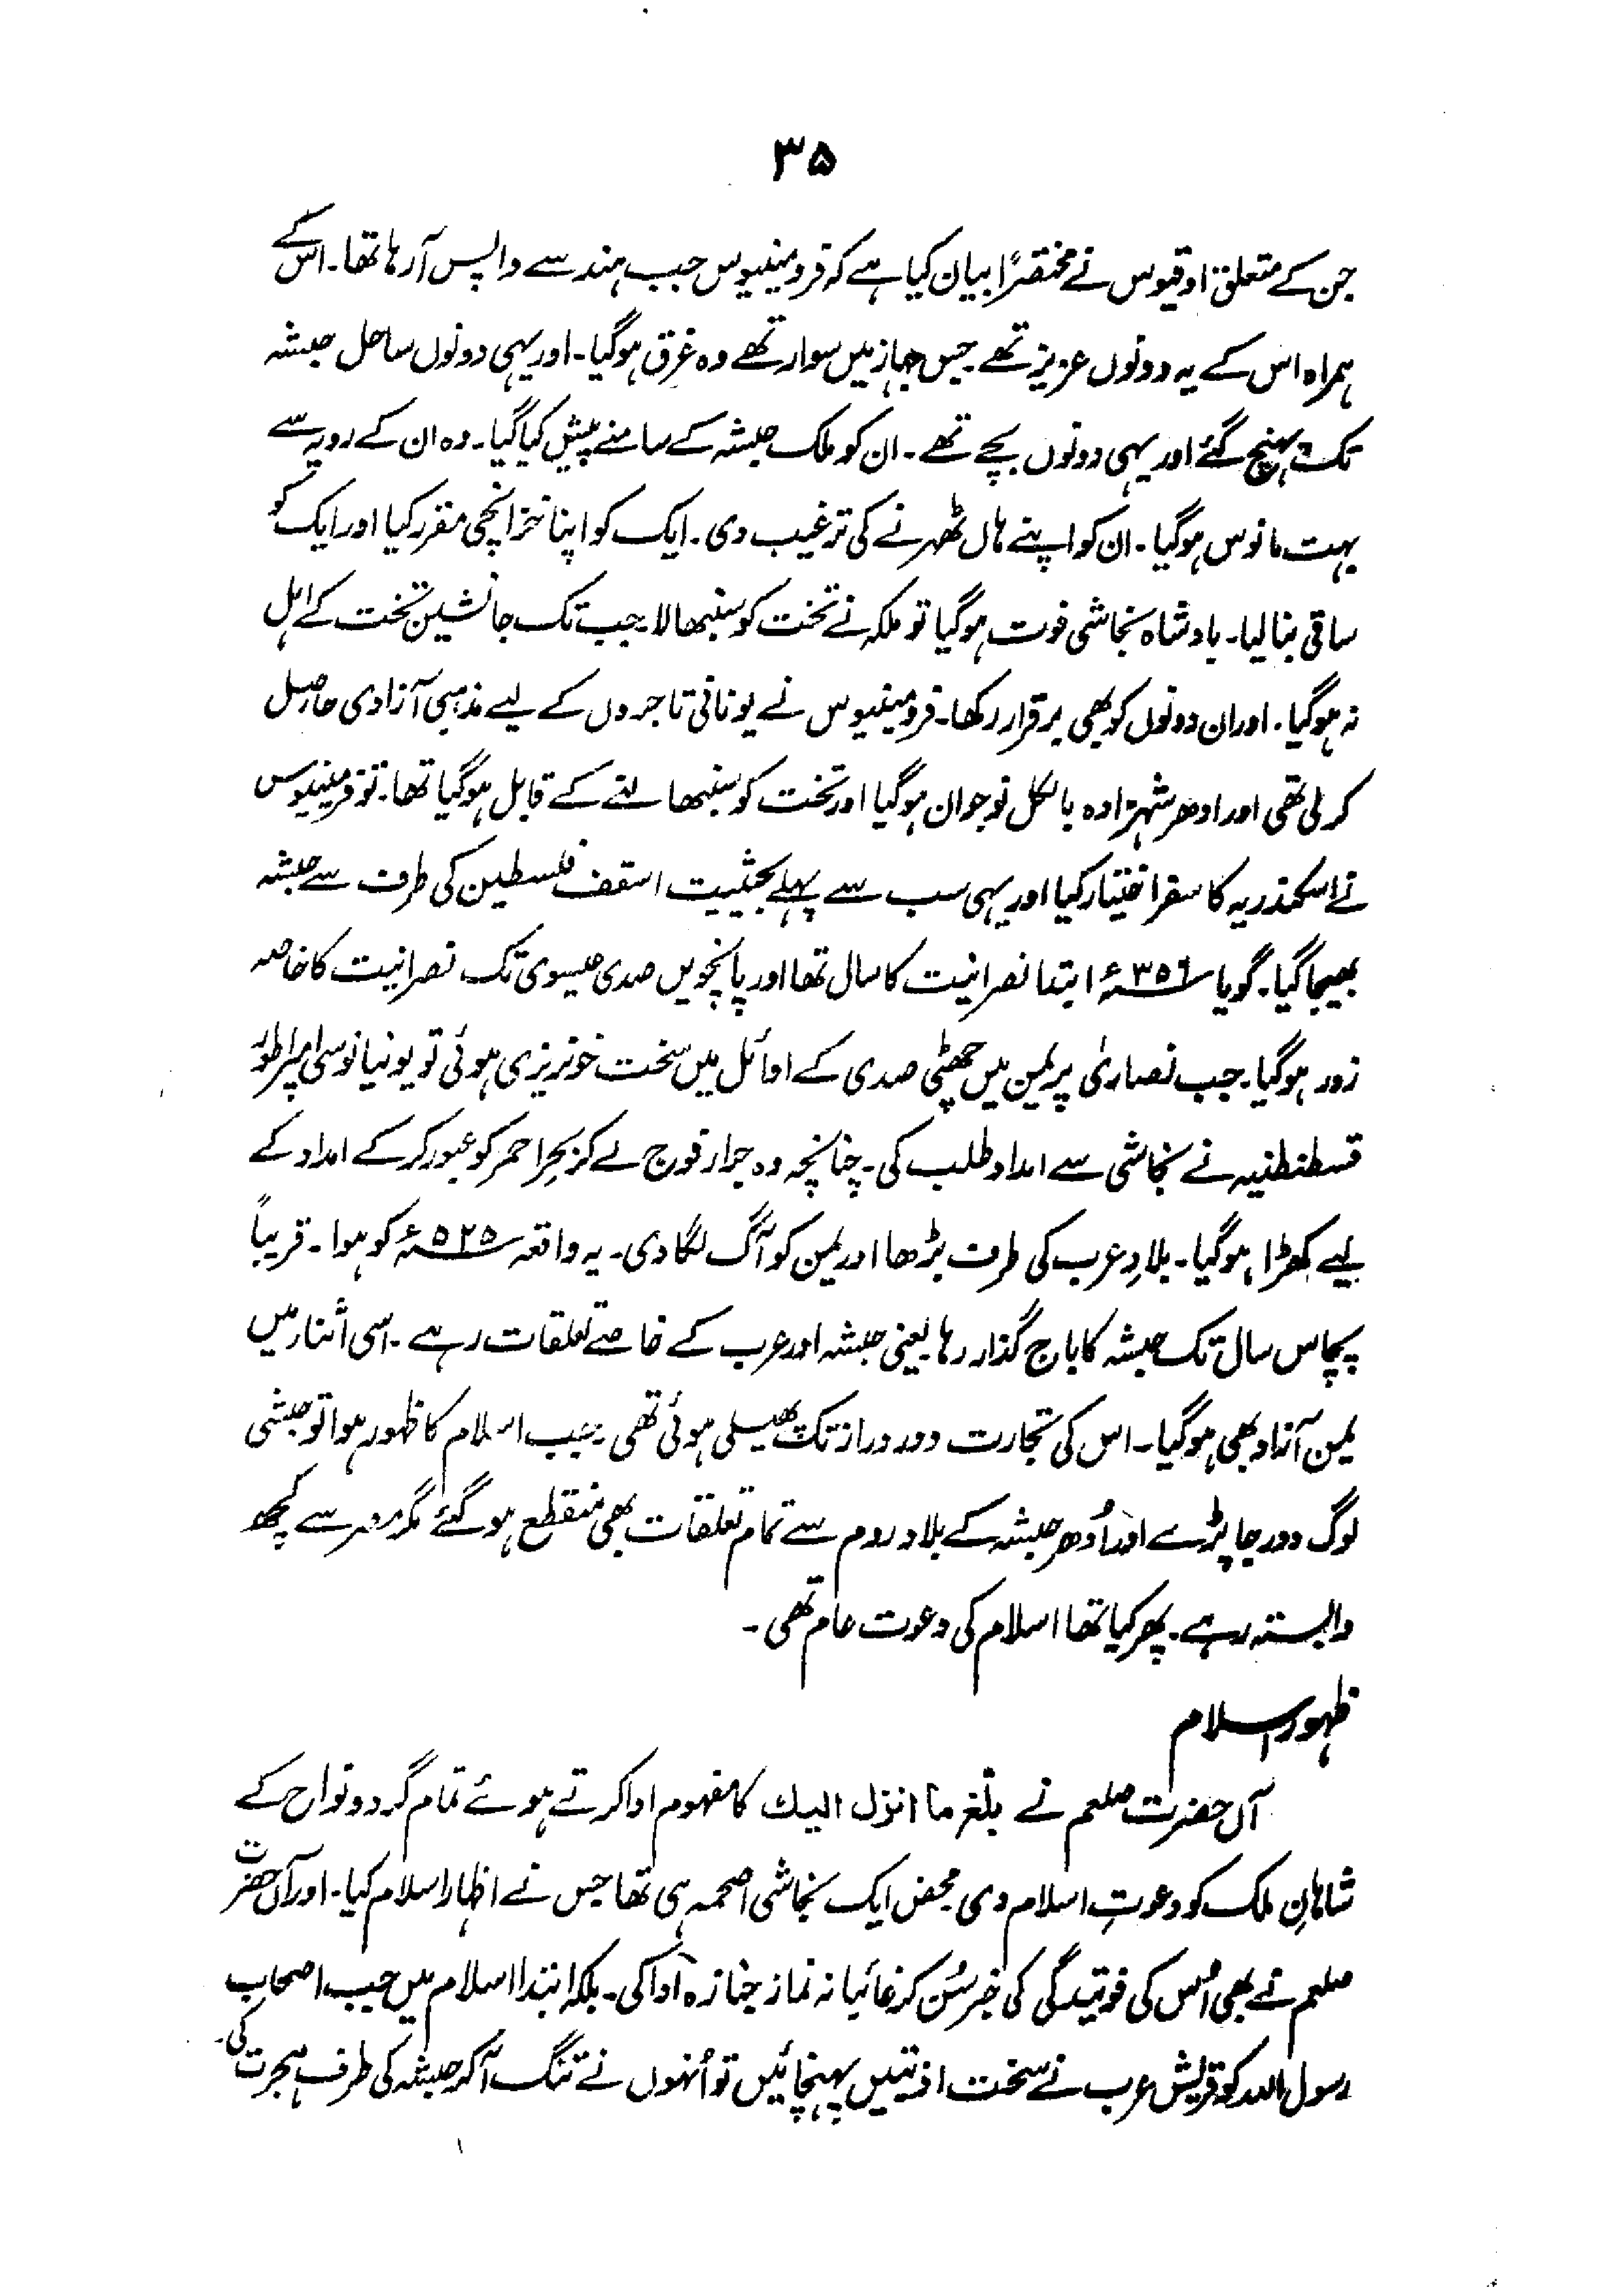 ۳۵
جن کے متعلق اوقیوس نے مختصراً بیان کیا ہے کہ فرومینیوس جب ہند سے واپس آ رہا تھا۔ اس کے
ہمراہ اس کے یہ دونوں عزیز تھے جس جہاز میں سوار تھے وہ غرق ہو گیا۔ اور یہی دونوں ساحل حبشہ
تک پہنچ گئے اور یہی دونوں بچے تھے۔ ان کو ملک حبشہ کے سامنے پیش کیا گیا۔ وہ ان کے رویہ سے
بہت مانوس ہو گیا۔ ان کو اپنے ہاں ٹھہرنے کی ترغیب دی۔ ایک کو اپنا خزانچی مقرر کیا اور ایک کو
ساقی بنا لیا۔ بادشاہ نجاشی فوت ہو گیا تو ملکہ نے تخت کو سنبھالا جب تک جانشین تخت کے اہل
نہ ہو گیا۔ اور ان دونوں کو بھی برقرار رکھا۔ فرومینیوس نے یونانی تاجروں کے لیے مذہبی آزادی حاصل
کر لی تھی اور ادھر شہزادہ بالکل نوجوان ہو گیا اور تخت کو سنبھالنے کے قابل ہو گیا تھا۔ تو فرمینیوس
نے اسکندریہ کا سفر اختیار کیا اور یہی سب سے پہلے بحیثیت اسقف فلسطین کی طرف سے حبشہ
بھیجا گیا۔ گویا ۳۵۶ء ابتدا نصرانیت کا سال تھا اور پانچویں صدی عیسوی تک نصرانیت کا خاصہ
زور ہو گیا۔ جب نصاریٰ پر یمن میں چھٹی صدی کے اوائل میں سخت خونریزی ہوئی تو یونیانوس امپراطور
قسطنطنیہ نے نجاشی سے امداد طلب کی۔ چنانچہ وہ جرار فوج لے کر بحرِ احمر کو عبور کر کے امداد کے
لیے کھڑا ہو گیا۔ بلادِ عرب کی طرف بڑھا اور یمن کو آگ لگا دی۔ یہ واقعہ ۵۲۵ء کو ہوا۔ قریباً
پچاس سال تک حبشہ کا باج گذار رہا یعنی حبشہ اور عرب کے خاصے تعلقات رہے۔ اسی اثنار میں
یمن آزاد بھی ہو گیا۔ اس کی تجارت دور دراز تک پھیلی ہوئی تھی۔ جب اسلام کا ظہور ہوا تو حبشی
لوگ دور جا پڑے اور اُدھر حبشہ کے بلاد روم سے تمام تعلقات بھی منقطع ہو گئے مگر مصر سے کچھ
وابستہ رہے۔ پھر کیا تھا اسلام کی دعوت عام تھی۔
ظہورِ اسلام
آں حضرت صلعم نے بلّغ ما انزل الیك کا مفہوم ادا کرتے ہوئے تمام گرد و نواح کے
شاہانِ ملک کو دعوتِ اسلام دی محض ایک نجاشی اصحمہ ہی تھا جس نے اظہار اسلام کیا۔ اور آں حضرت
صلعم نے بھی اُس کی فوتیدگی کی خبر سُن کر غائبانہ نماز جنازہ ادا کی۔ بلکہ ابتدا اسلام میں جب اصحاب
رسول اللہ کو قریش عرب نے سخت اذیتیں پہنچائیں تو اُنہوں نے تنگ آکر حبشہ کی طرف ہجرت کی۔